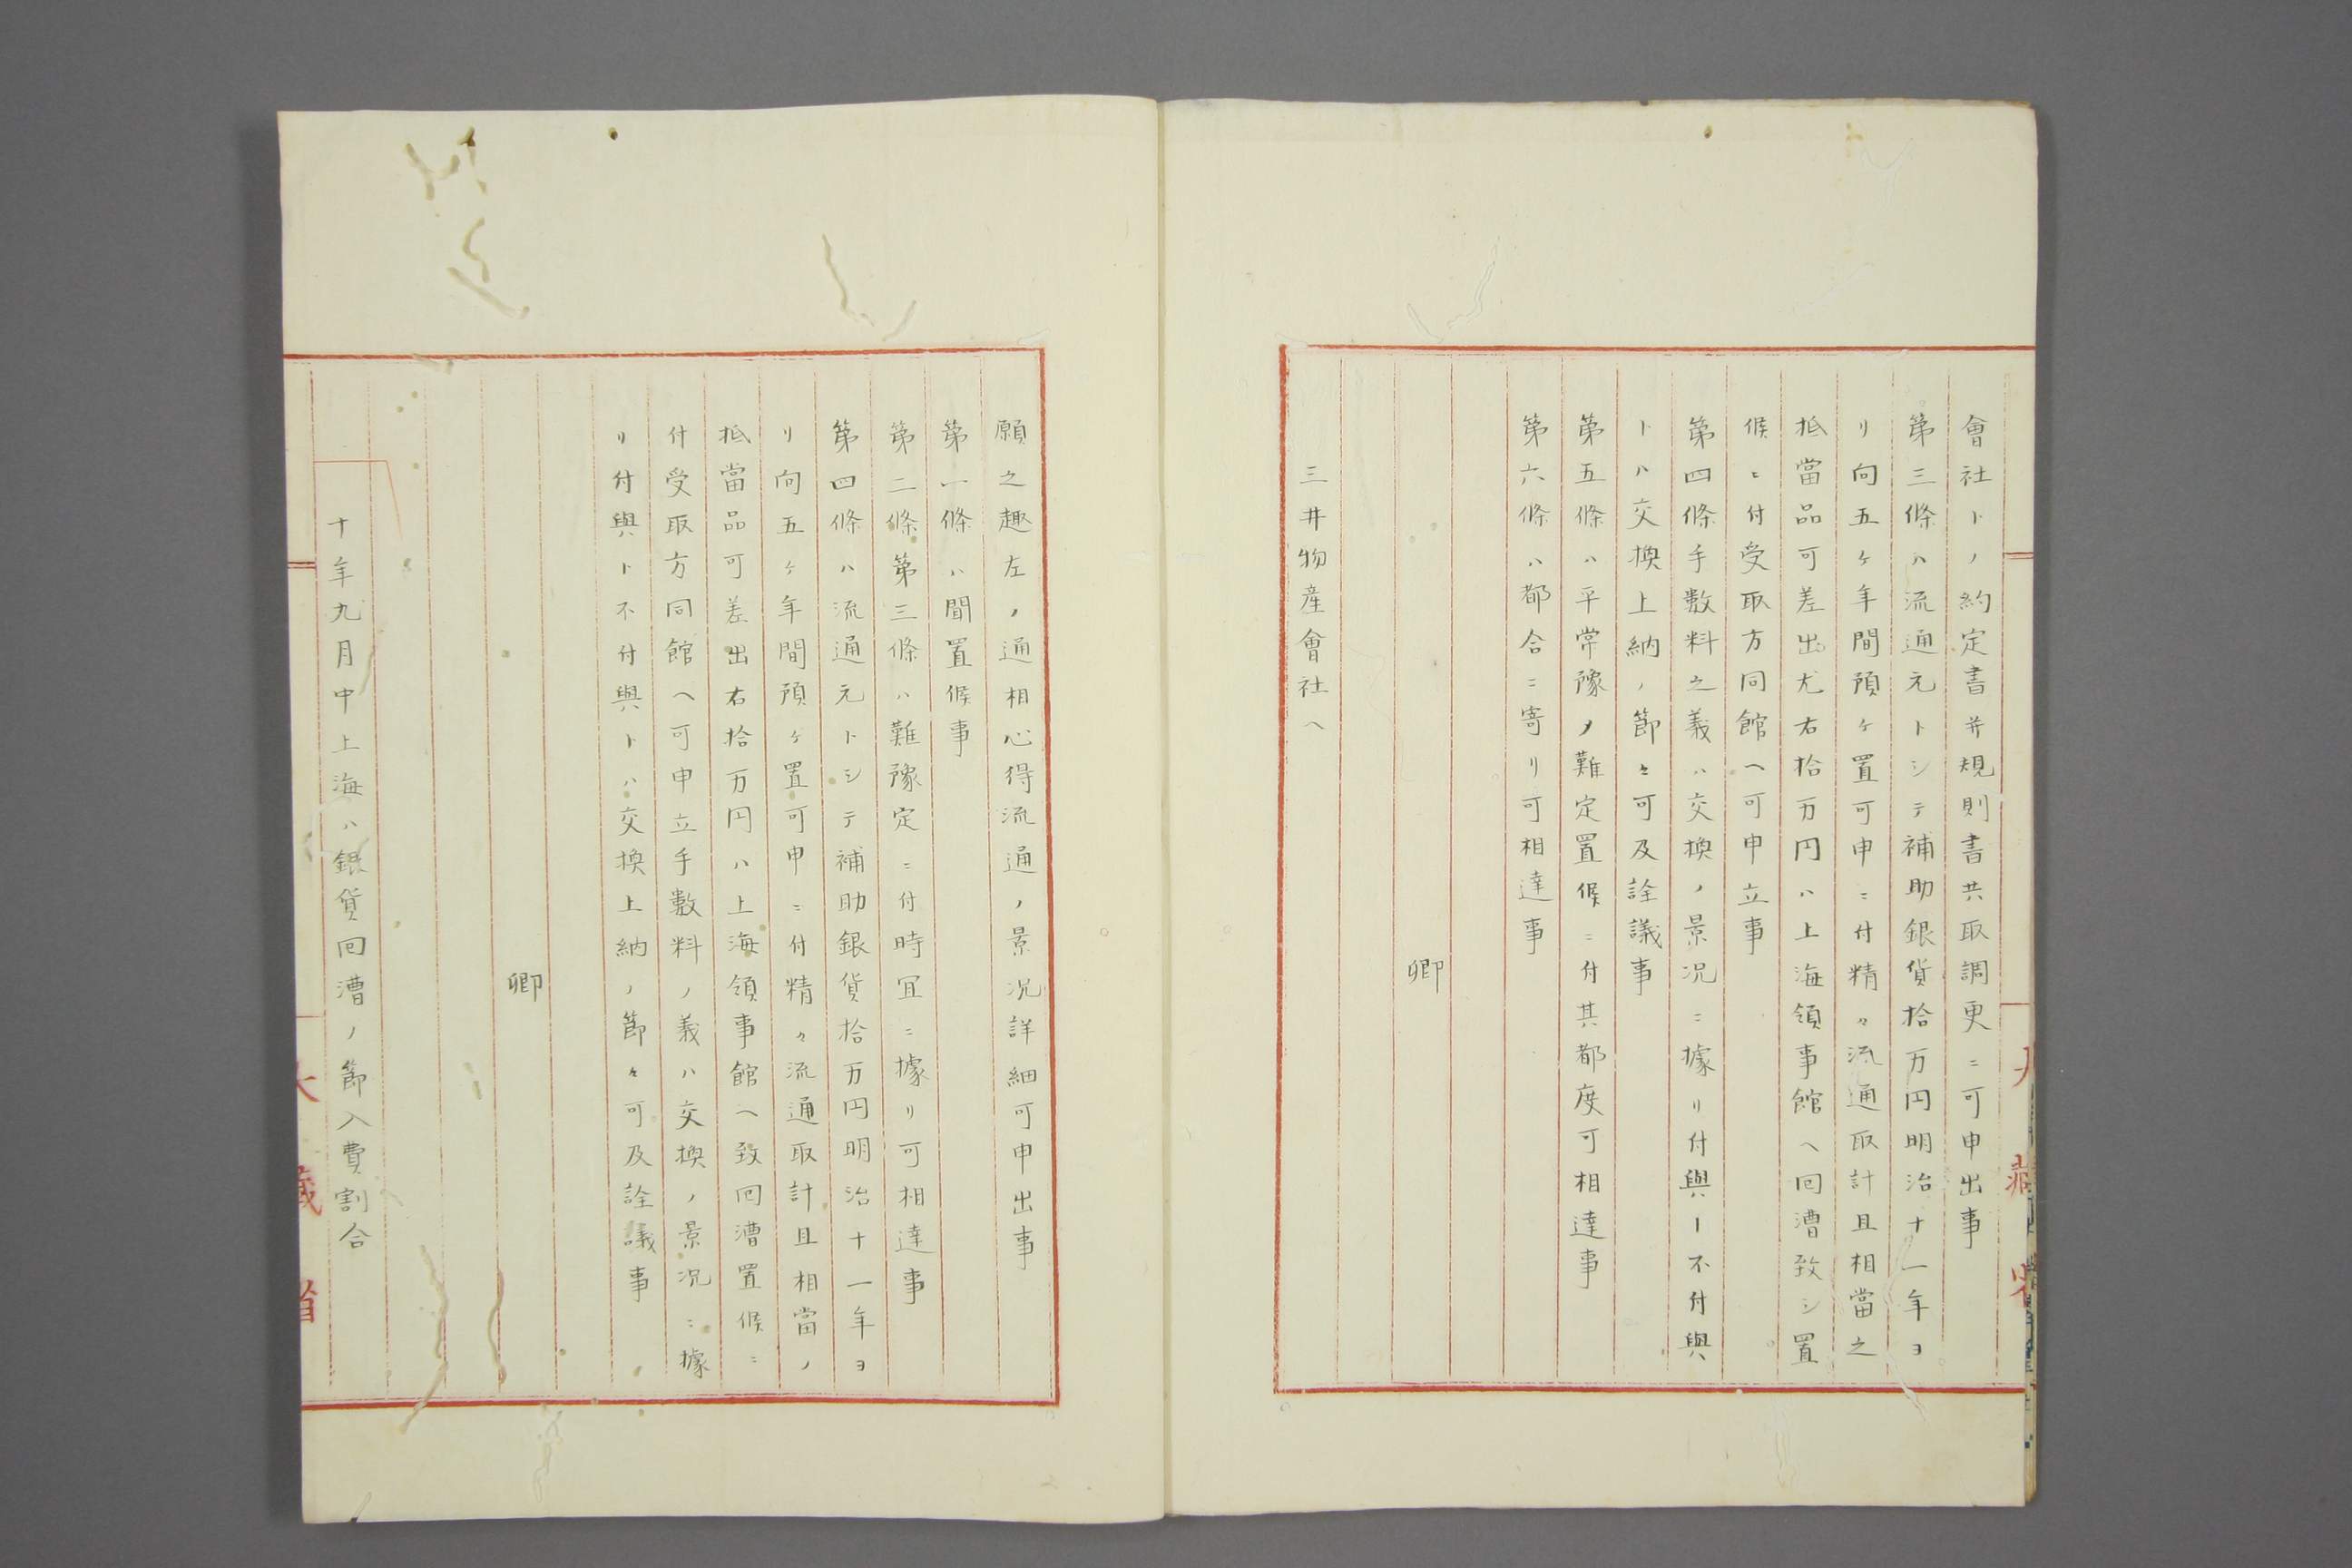 會社トノ約定書并規則書共取調更ニ可申出事
第三條ハ流通元トシテ補助銀貨拾万円明治十一年ヨ
リ向五ヶ年間預ヶ置可申ニ付精々流通取計且相當之
抵當品可差出尤右拾万円ハ上海領事館ヘ回漕致シ置
候ニ付受取方同館ヘ可申立事
第四條手數料之義ハ交換ノ景况ニ據リ付與ト不付與
トハ交換上納ノ節々可及詮議事
第五條ハ平常豫メ難定置候ニ付其都度可相達事
第六條ハ都合ニ寄リ可相達事
卿
三井物産會社ヘ
願之趣左ノ通相心得流通ノ景况詳細可申出事
第一條ハ聞置候事
第二條第三條ハ難豫定ニ付時宜ニ據リ可相達事
第四條ハ流通元トシテ補助銀貨拾万円明治十一年ヨ
リ向五ヶ年間預ヶ置可申ニ付精々流通取計且相當ノ
抵當品可差出右拾万円ハ上海領事館ヘ致回漕置候ニ
付受取方同館ヘ可申立手數料ノ義ハ交換ノ景况ニ據
リ付與ト不付與トハ交換上納ノ節々可及詮議事
卿
十年九月中上海ハ銀貨回漕ノ節入費割合
大藏省